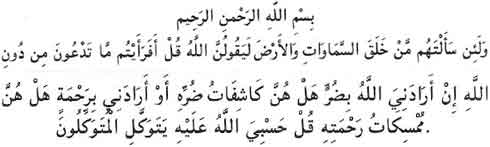 بِسْمِ اللَّهِ الرَّحْمَنِ الرَّحِيم
وَلَئِن سَأَلْتَهُم مَّنْ خَلَقَ السَّمَاوَاتِ وَالأَرْضَ لَيَقُولُنَّ اللَّهُ قُلْ أَفَرَأَيْتُم مَّا تَدْعُونَ مِن دُونِ
اللَّهِ إِنْ أَرَادَنِيَ اللَّهُ بِضُرٍّ هَلْ هُنَّ كَاشِفَاتُ ضُرِّهِ أَوْ أَرَادَنِي بِرَحْمَةٍ هَلْ هُنَّ
مُمْسِكَاتُ رَحْمَتِهِ قُلْ حَسْبِيَ اللَّهُ عَلَيْهِ يَتَوَكَّلِ الْمُتَوَكِّلُونَ.